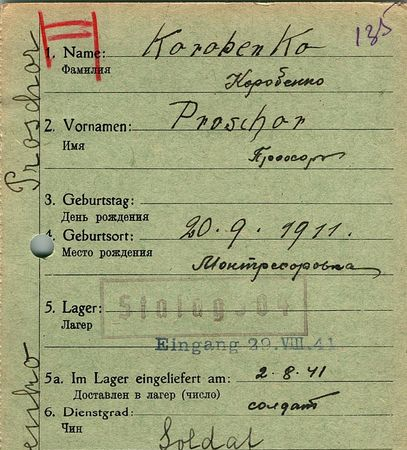 185
1. Name: Korobenko
Фамилия
Коробенко
2. Vornamen: Proschor
Имя
Прохор
3. Geburtstag:
День рождения
20. 9. 1911.
4. Geburtsort:
Место рождения
Монтресоровка
5. Lager: Stalag 304
Лагер
Eingang 29. VIII. 41
5a. Im Lager eingeliefert am: 2-8-41
Доставлен в лагер (число)
6. Dienstgrad: солдат
Чин
Soldat
Proschor
enko